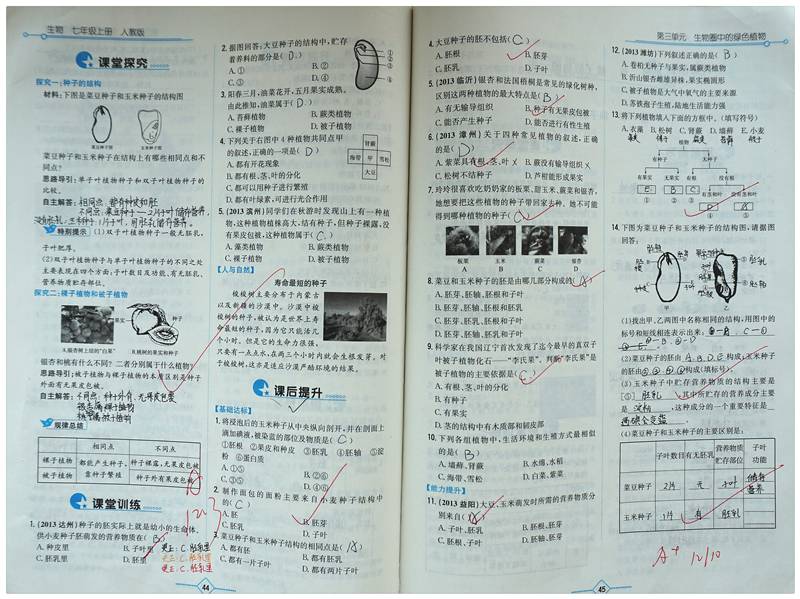 生物 七年级上册 人教版
课堂探究
探究一:种子的结构
材料:下图是菜豆种子和玉米种子的结构图
菜豆种子 玉米种子
菜豆种子和玉米种子在结构上有哪些相同点和不
同点?
思路导引:单子叶植物种子和双子叶植物种子的
比较。
自主解答:相同点:都有种皮和胚
特别提示 (1)双子叶植物种子一般无胚乳,
子叶肥厚。
(2)双子叶植物种子与单子叶植物种子的不同之处
主要表现在四个方面:子叶数目及功能、有无胚乳、
营养物质贮存部位。
探究二:裸子植物和被子植物
果实 种子
A.银杏树上结的“白果” B.桃树的果实和种子
银杏和桃有什么不同?二者分别属于什么植物?
思路导引:被子植物与裸子植物的本质区别是种子
外面有无果皮包被。
自主解答:不同点:种子外有,无果皮包裹
规律总结
相同点 不同点
裸子植物 都能产生种子, 种子裸露,无果皮包被
被子植物 靠种子繁殖 种子外有果皮包被
课堂训练
1.(2013 达州)种子的胚实际上就是幼小的生命体,
供小麦种子胚萌发的营养物质在( B )
A.种皮里 B.子叶里
C.胚乳里 D.胚里
更正:C.胚乳里
更正:C.胚乳里
更正:C.胚乳里
2.据图回答:大豆种子的结构中,贮存
着养料的部分是( D )
A.① B.②
C.③ D.④
3.阳春三月,油菜花开,五月果实成熟。
由此推知,油菜属于( D )
A.苔藓植物 B.蕨类植物
C.裸子植物 D.被子植物
4.下列关于右图中 4 种植物共同点甲
的叙述,正确的一项是( D )
A.都有开花现象
B.都有根、茎、叶的分化
C.都可以用种子进行繁殖
D.都有叶绿素,可进行光合作用
肾蕨
海带 甲 雪松
大豆
5.(2013 滨州)同学们在秋游时发现山上有一种植
物,这种植物植株高大、结有种子,但种子裸露,没
有果皮包被,这种植物属于( C )
A.藻类植物 B.蕨类植物
C.裸子植物 D.被子植物
【人与自然】
寿命最短的种子
梭梭树主要分布于内蒙古
以及新疆的沙漠中。沙漠中梭
梭树的种子,被认为是世界上寿
命最短的种子,因为它只能活几
个小时。但是它的生命力很强,
只要有一点点水,在两三个小时内就会生根发芽。对
于梭梭树,这亦是适应沙漠严酷环境的结果。
课后提升
【基础达标】
1.将浸泡后的玉米种子从中央纵向剖开,并在剖面上
滴加碘液,被染蓝的部位及物质是( C )
①胚根 ②果皮和种皮 ③胚乳 ④胚轴 ⑤淀
粉 ⑥蛋白质
A.①⑤ B.②⑥
C.③⑤ D.④⑥
2.制作面包的面粉主要来自小麦种子结构中
的( C )
A.胚 B.胚芽
C.胚乳 D.子叶
3.菜豆种子和玉米种子结构的相同点是( A )
A.都有胚 B.都有胚乳
C.都有一片子叶 D.都有两片子叶
44
第三单元 生物圈中的绿色植物
4.大豆种子的胚不包括( C )
A.胚根 B.胚芽
C.胚乳 D.子叶
5.(2013 临沂)银杏和法国梧桐是常见的绿化树种,
区别这两种植物的最大特点是( B )
A.有无输导组织 B.种子有无果皮包被
C.能否产生种子 D.能否进行有性生殖
6.(2013 漳州)关于四种常见植物的叙述,正确
的是( D )
A.紫菜具有根、茎、叶 B.蕨没有输导组织
C.松树不结种子 D.芦柑能形成果实
7.玲玲很喜欢吃奶奶家的板栗、甜玉米、蕨菜和银杏,
她想要把这些植物的种子带回家去种。她不可能
得到哪种植物的种子( C )
板栗 玉米 蕨菜 银杏
A B C D
8.菜豆和玉米种子的胚是由哪几部分构成的( A )
A.胚芽、胚轴、胚根和子叶
B.胚芽、胚轴、胚根和胚乳
C.胚芽、胚根、胚乳和子叶
D.胚芽、胚轴、胚乳和子叶
9.科学家在我国辽宁首次发现了迄今最早的真双子
叶被子植物化石——“李氏果”。判断“李氏果”是
被子植物的主要依据是( C )
A.有根、茎、叶的分化
B.有种子
C.有果实
D.茎的结构中有木质部和韧皮部
10.下列各组植物中,生活环境和生殖方式最相似
的是( B )
A.墙藓、肾蕨 B.水绵、水稻
C.海带、雪松 D.白菜、紫菜
【能力提升】
11.(2013 益阳)大豆、玉米萌发时所需的营养物质分
别来自( A )
A.子叶、胚乳 B.胚根、胚乳
C.子叶、胚芽 D.胚轴、胚芽
12.(2013 潍坊)下列叙述正确的是( B )
A.卷柏无种子与果实,属蕨类植物
B.沂山银杏雌雄异株,果实椭圆形
C.被子植物是大气中氧气的主要来源
D.苏铁孢子生殖,陆地生活能力强
13.将下列植物填入下面的方框中。(填写符号)
A.衣藻 B.松树 C.肾蕨 D.墙藓 E.小麦
植物
有种子 无种子
有果实 无果实 有根 无根
E B C
有茎和叶 没有茎和叶
D A
14.下图为菜豆种子和玉米种子的结构图,请据图
回答:
甲 乙
(1)找出甲、乙两图中名称相同的结构,用图中的
标号和短线相连表示出来:
(2)菜豆种子的胚由 A、B、D、E 构成;玉米种子
的胚由 构成(填标号)。
(3)玉米种子中贮存营养物质的结构主要是
胚乳,其中所贮存的营养成分主要
是 淀粉 ,这种成分的一个重要特征是
遇碘会变蓝
(4)菜豆种子和玉米种子的主要区别是:
子叶数目 有无胚乳 营养物质贮存部位 子叶功能
菜豆种子 2片 无 子叶 储存营养
玉米种子 1片 有 胚乳
A+ 12/10
45